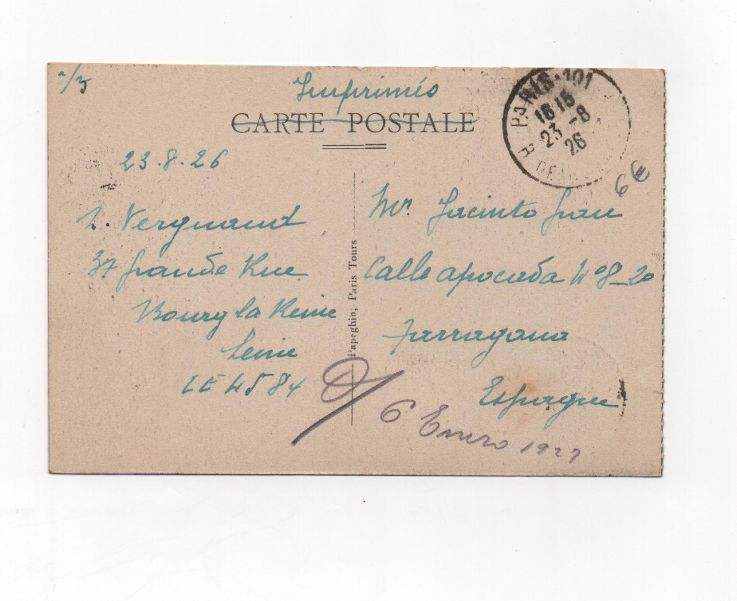 Imprimés
CARTE POSTALE
PARIS · 101
1815
23 - 8
26
R
6€
23.8.26
Vergnaud
37 Grande Rue
Bourg la Reine
Seine
Papeghin, Paris Tours
Mr Jacinto Grau
Calle apocada Nº8_20
Tarragona
Espagne
6 Enero 1927